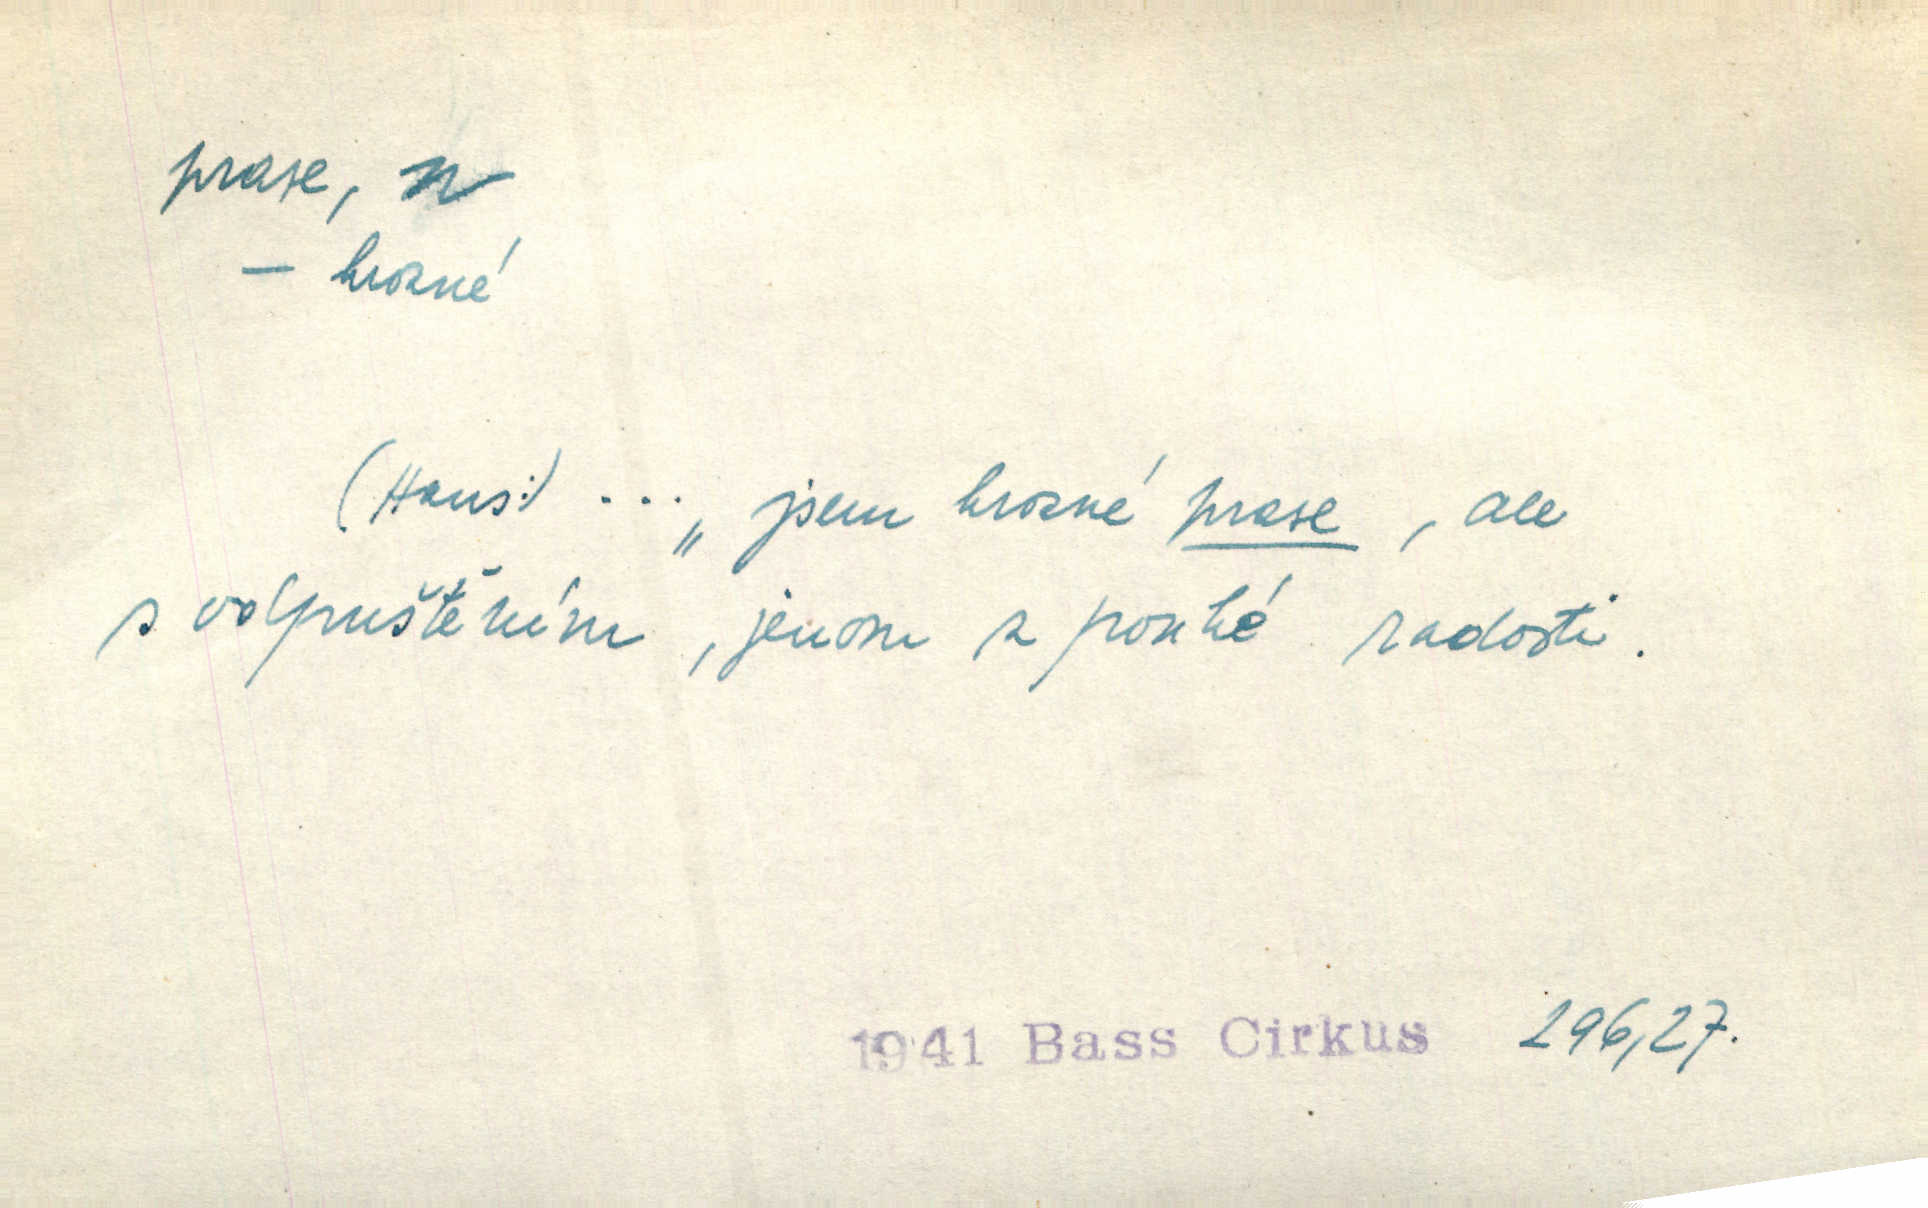 prase, n
– hrozné
(Hans:) ... „ jsem hrozné prase, ale
s odpuštěním, jenom z pouhé radosti.
1941 Bass Cirkus 296,27.